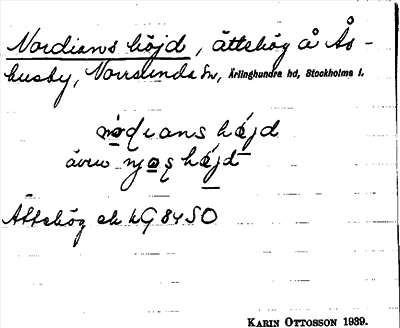 Nordians höjd, ättehög å Ås-
husby, Norrsunda sn, Ärlinghundra hd, Stockholms l.
höjd
även
Ättehög ek kG 84 SO
KARIN OTTOSSON 1939.